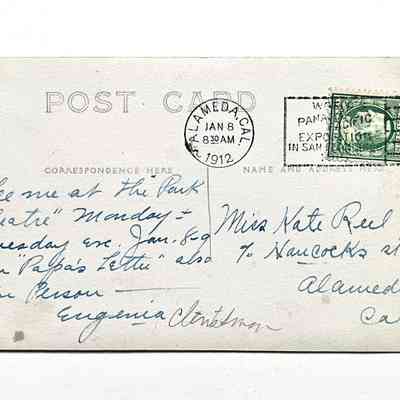 POST CARD
ALAMEDA, CAL.
JAN 8
8:30 AM
1912
WORLD'S
PANAMA PACIFIC
EXPOSITION
IN SAN FRANCISCO
CORRESPONDENCE HERE
NAME AND ADDRESS HERE
me at the Park
" Monday &
Eve. Jan. 8-9
"Papa's Letter" also
Person —
Eugenia Clinetsman
Miss Kate Reel
c/o Hancocks
Alameda
Ca